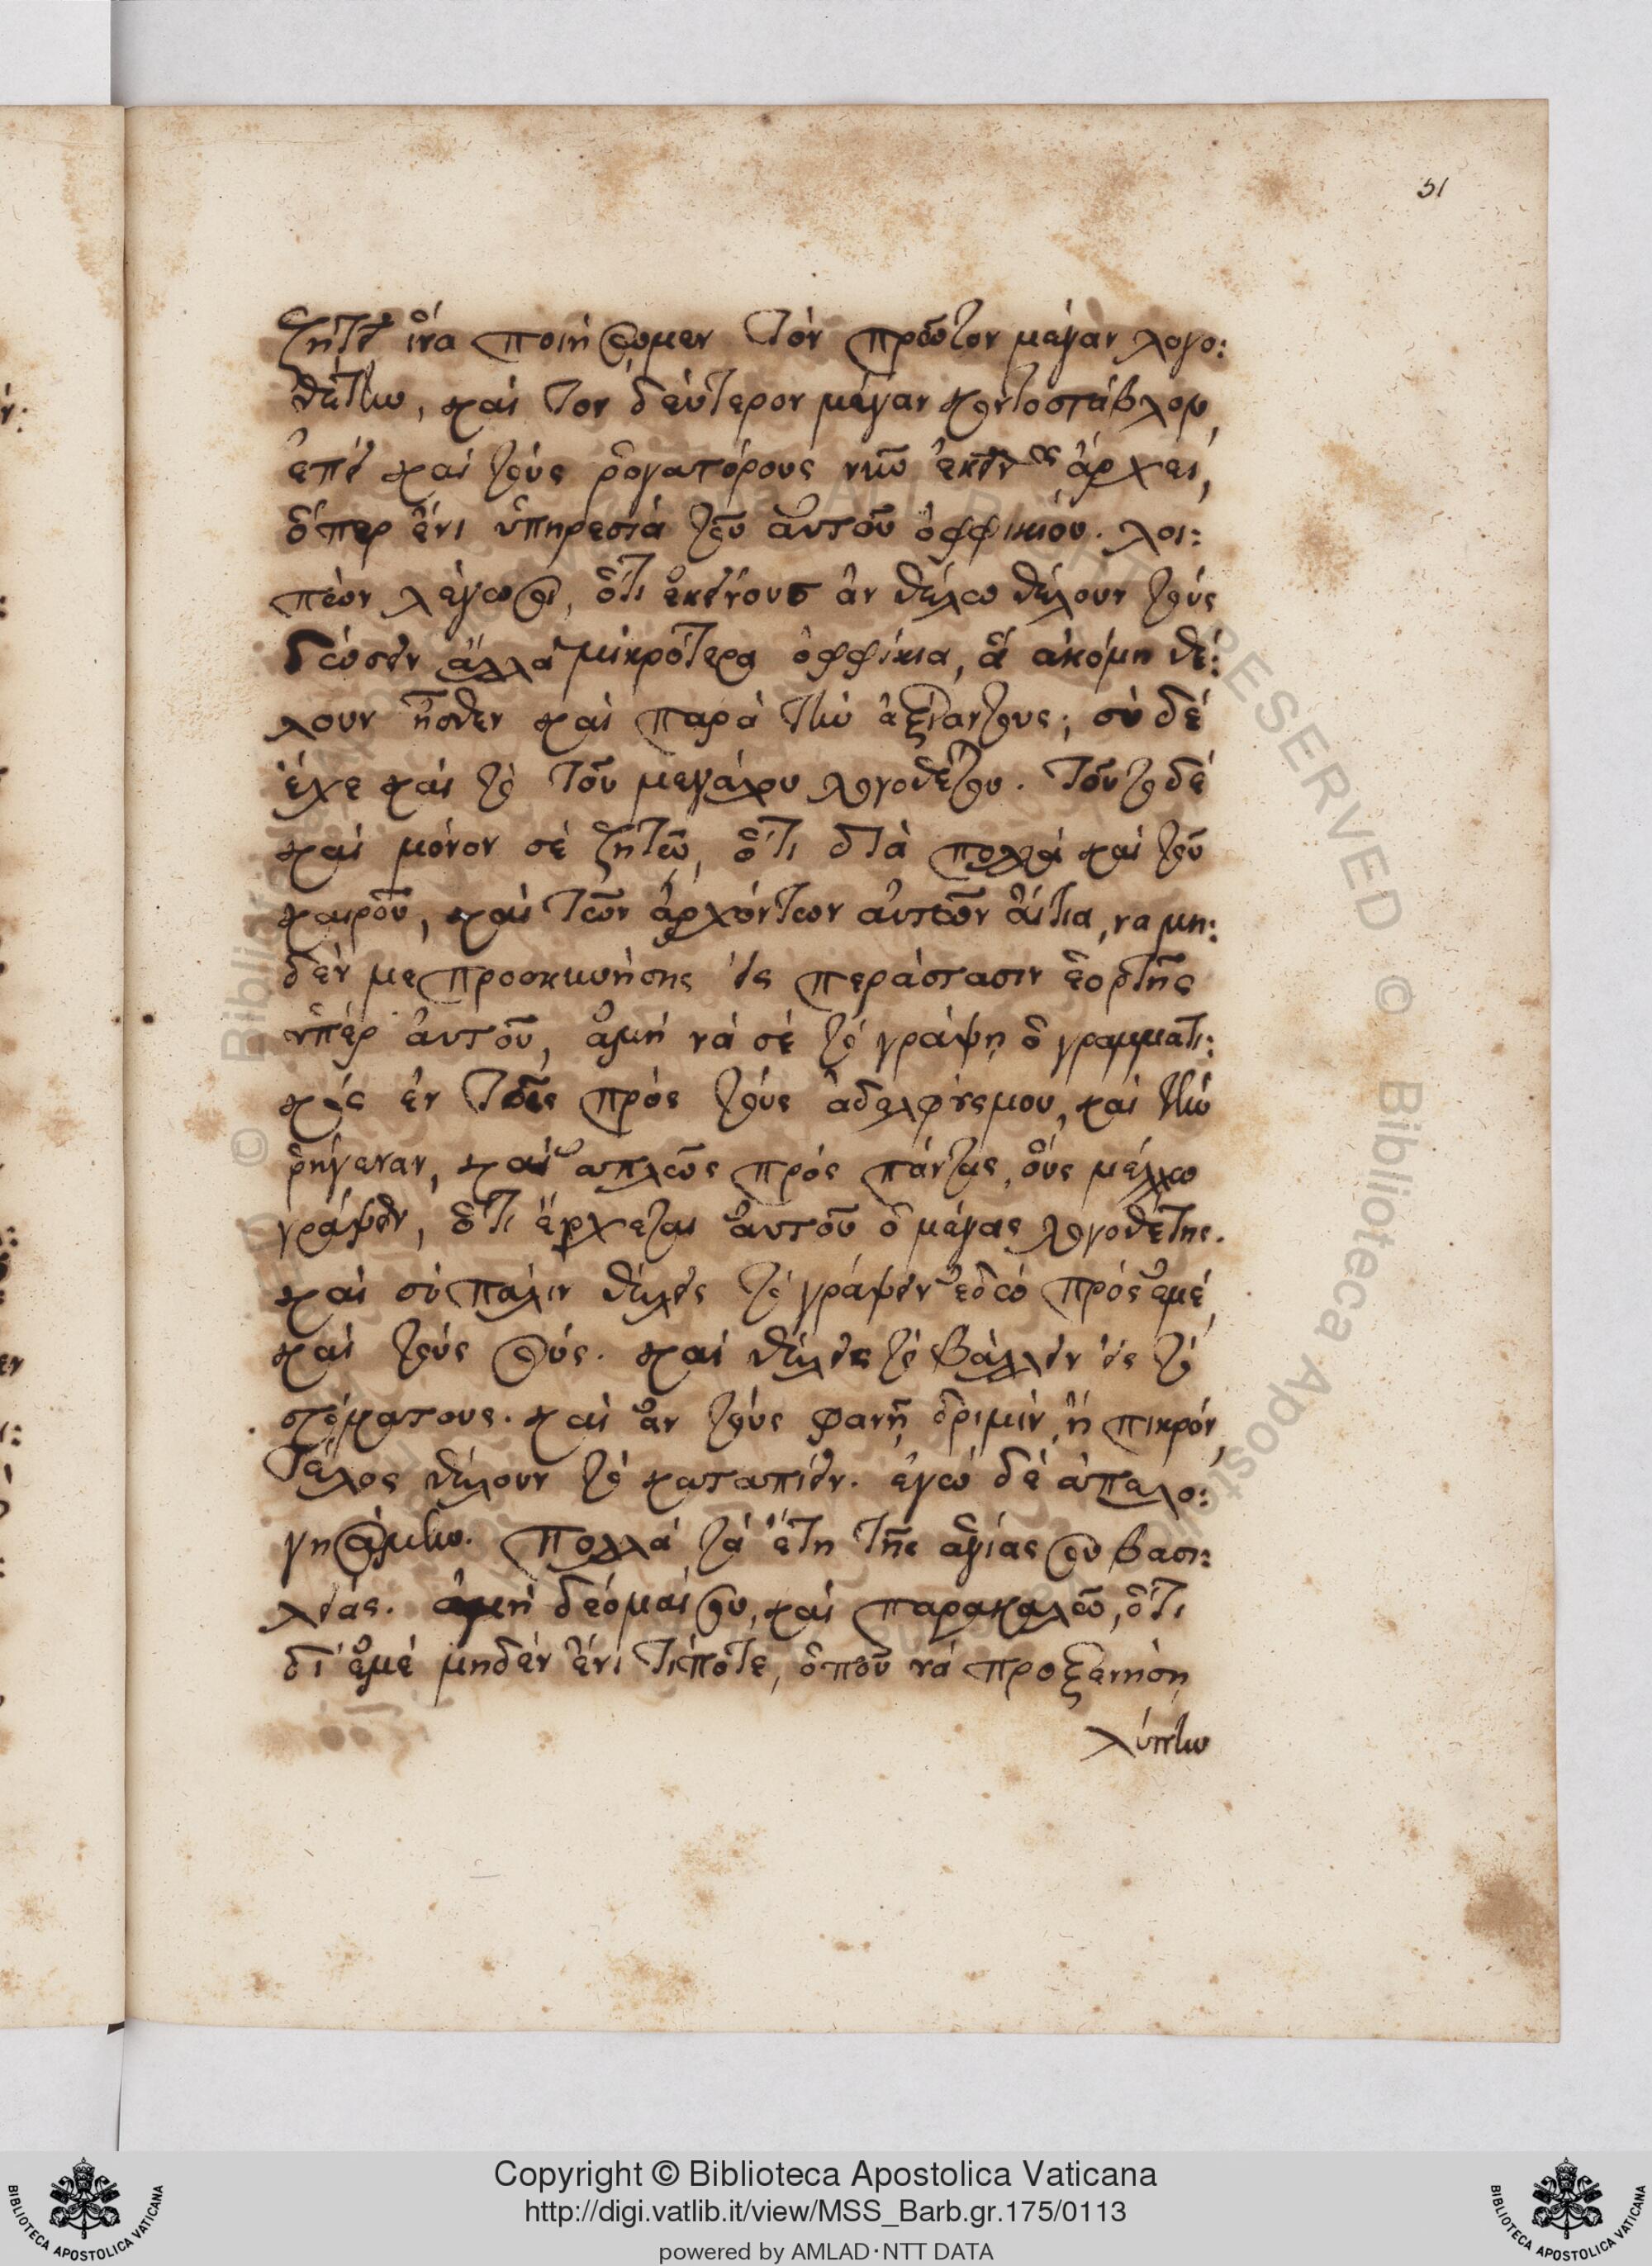 51
ζητεῖ ἵνα ποιήσωμεν τὸν πρῶτον μέγαν λογο:
θέτην, καὶ τὸν δεύτερον μέγαν κοντοστάβλον,
ἐπεὶ καὶ τοὺς ῥογατόρους νῦν ἐκεῖνος ἄρχει,
ὅπερ ἔνι ὑπηρεσία τοῦ αὐτοῦ ὀφφικίου. λοι:
πὸν λέγω σοι, ὅτι ἐκείνους ἂν θέλω θέλουν τοὺς
δώσειν ἄλλα μικρότερα ὀφφίκια, ἃ ἀκόμη θέ:
λουν ἦσθεν καὶ παρὰ τὴν ἀξίαν τους, σὺ δὲ
ἔχε καὶ τὸ τοῦ μεγάλου λογοθέτου. τοῦτο δὲ
καὶ μόνον σὲ ζητῶ, ὅτι διὰ πολλὰ καὶ τοῦ
καιροῦ, καὶ τῶν ἀρχόντων αὐτῶν αἴτια, να μη:
δέν με προσκυνήσης εἰς περάστασιν ἑορτῆς
ὑπὲρ αὐτοῦ, ἀμὴ νὰ σὲ τὸ γράψη ὁ γραμματι:
κὸς ἐν τοῖς πρὸς τοὺς ἀδελφούς μου, καὶ τὴν
ῥήγεναν, καὶ ἁπλῶς πρὸς πάντας, οὓς μέλλω
γράψειν, ὅτι ἔρχεται αὐτοῦ ὁ μέγας λογοθέτης.
καὶ σὺ πάλιν θέλεις τὸ γράψειν ἐδῶ πρὸς ἐμέ,
καὶ τοὺς σούς. καὶ θέλεις τὸ βάλλειν εἰς τὸ
στόμα τους. καὶ ἂν τοὺς φανῆ δριμὺν, ἢ πικρόν,
τέλος θέλουν τὸ καταπιεῖν. ἐγὼ δὲ ἀπελο:
γησάμην. Πολλὰ τὰ ἔτη τῆς ἁγίας σου βασι:
λείας. ἀμὴ δέομαί σου, καὶ παρακαλῶ, ὅτι
δι' ἐμὲ μηδὲν ἔνι τίποτε, ὁποῦ νὰ προξενήση
λύπην
Copyright © Biblioteca Apostolica Vaticana
http://digi.vatlib.it/view/MSS_Barb.gr.175/0113
powered by AMLAD·NTT DATA